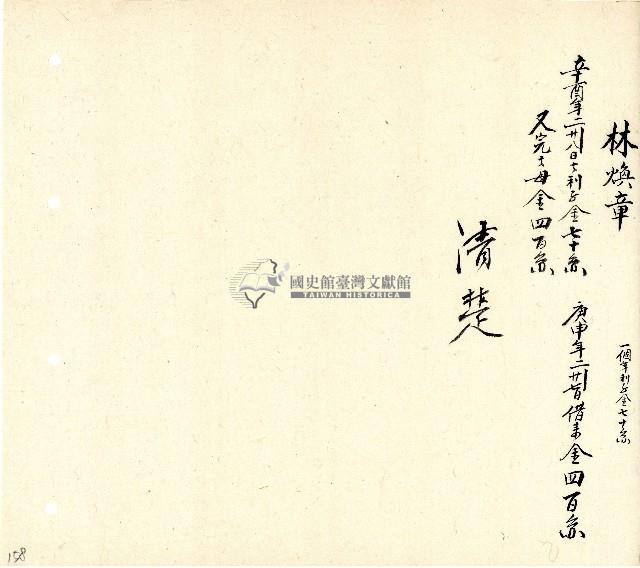 林煥章
一個年利子金七十不
庚申年二廿 借来金四百不
辛酉年二廿八日 利子金七十不
又完 母金四百不
清楚
國史館臺灣文獻館
TAIWAN HISTORICA
158